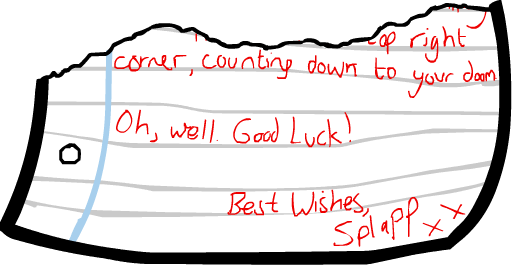 right
corner, counting down to your doom
Oh, well. Good Luck!
Best Wishes,
Splapp x x